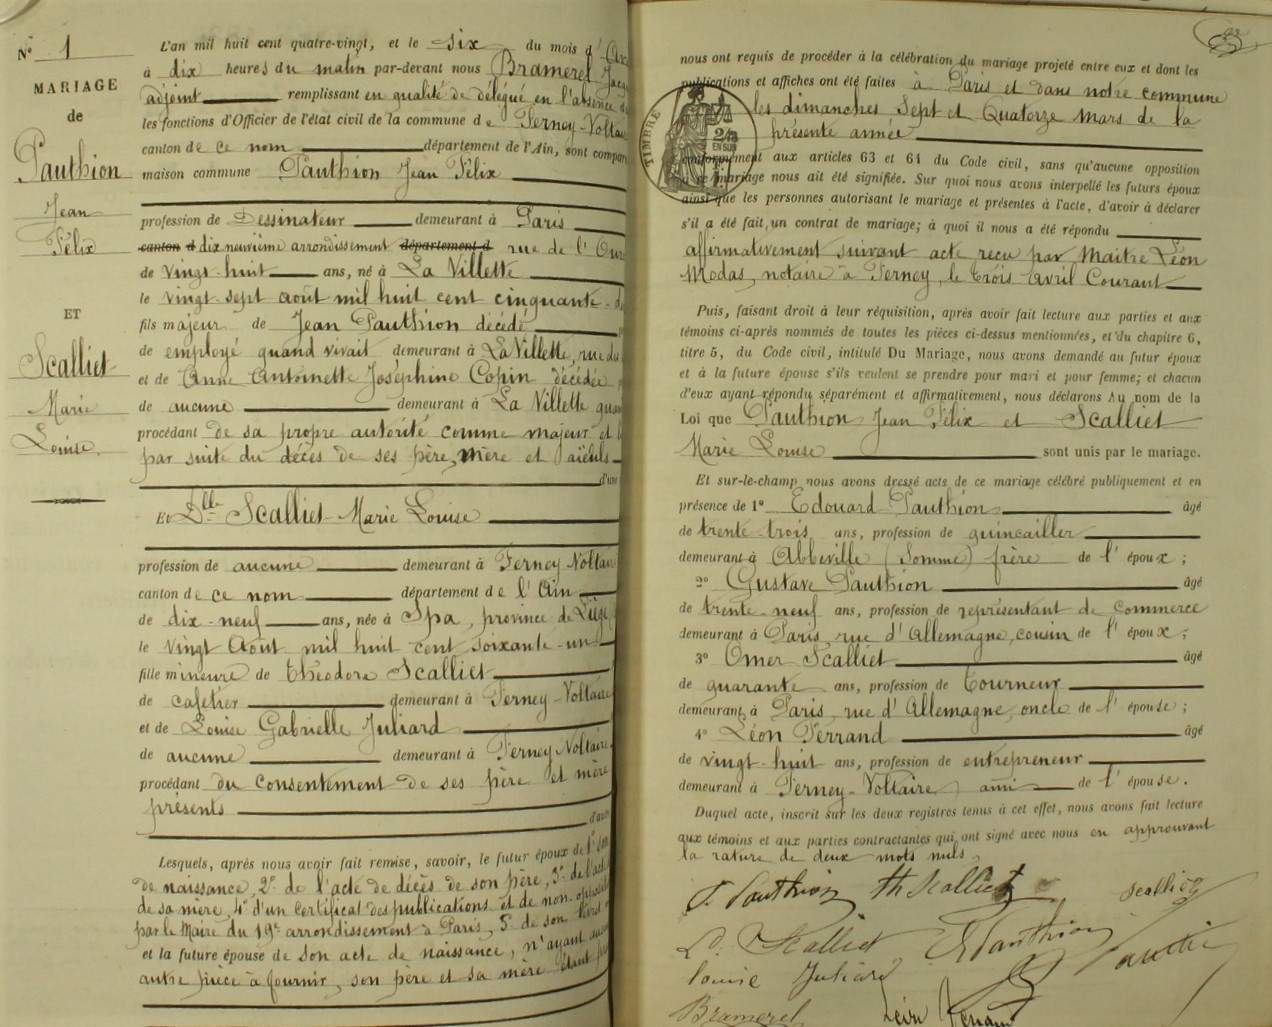 N° 1
MARIAGE
de
Pauthion
Jean
Félix
ET
Scalliet
Marie
Louise.
L'an mil huit cent quatre-vingt, et le six du mois d'
à dix heures du matin par-devant nous Bramerel
adjoint remplissant en qualité de délégué en l'absence
les fonctions d'Officier de l'état civil de la commune de Ferney-Voltai
canton de ce nom département de l'Ain, sont compar
maison commune Pauthion Jean Félix
profession de Dessinateur demeurant à Paris
canton d dix neuvième arrondissement département d rue de l'Our
de vingt-huit ans, né à La Villette
le vingt-sept août mil huit cent cinquante-
fils majeur de Jean Pauthion décédé
de employé quand vivait demeurant à La Villette, rue du
et de Anne Antoinette Joséphine Copin décédée
de aucune demeurant à La Villette quan
procédant de sa propre autorité comme majeur et
par suite du décès de ses père, mère et aïeuls
d'une
Et Dlle Scalliet Marie Louise
profession de aucune demeurant à Ferney Voltair
canton de ce nom département de l'Ain
de dix-neuf ans, née à Spa, province de Liège
le vingt Août mil huit cent soixante-un
fille mineure de Théodore Scalliet
de cafetier demeurant à Ferney-Voltaire
et de Louise Gabrielle Juliard
de aucune demeurant à Ferney Voltaire
procédant du consentement de ses père et mère
présents
d'autre
Lesquels, après nous avoir fait remise, savoir, le futur époux de 1° son
de naissance, 2° de l'acte de décès de son père, 3° de l'act
de sa mère, 4° d'un certificat des publications et de non-opposit
par le Maire du 19e arrondissement à Paris, 5° de son livret
et la future épouse de son acte de naissance, n'ayant aucune
autre pièce à fournir, son père et sa mère étant
nous ont requis de procéder à la célébration du mariage projeté entre eux et dont les
publications et affiches ont été faites à Paris et dans notre commune
les dimanches Sept et Quatorze mars de la
présente année
TIMBRE
2/10 EN SUS
conformément aux articles 63 et 64 du Code civil, sans qu'aucune opposition
à ce mariage nous ait été signifiée. Sur quoi nous avons interpellé les futurs époux
ainsi que les personnes autorisant le mariage et présentes à l'acte, d'avoir à déclarer
s'il a été fait un contrat de mariage; à quoi il nous a été répondu
affirmativement suivant acte reçu par Maitre Léon
Modas, notaire à Ferney, le trois avril Courant
Puis, faisant droit à leur réquisition, après avoir fait lecture aux parties et aux
témoins ci-après nommés de toutes les pièces ci-dessus mentionnées, et du chapitre 6,
titre 5, du Code civil, intitulé Du Mariage, nous avons demandé au futur époux
et à la future épouse s'ils veulent se prendre pour mari et pour femme; et chacun
d'eux ayant répondu séparément et affirmativement, nous déclarons Au nom de la
Loi que Pauthion Jean Félix et Scalliet
Marie Louise sont unis par le mariage.
Et sur-le-champ nous avons dressé acte de ce mariage célébré publiquement et en
présence de 1° Edouard Pauthion âgé
de trente-trois ans, profession de quincailler
demeurant à Abbeville (Somme) frère de l'époux;
2° Gustave Pauthion âgé
de trente-neuf ans, profession de représentant de commerce
demeurant à Paris, rue d'Allemagne, cousin de l'époux;
3° Omer Scalliet âgé
de quarante ans, profession de tourneur
demeurant à Paris, rue d'Allemagne, oncle de l'épouse;
4° Léon Ferrand âgé
de vingt-huit ans, profession de entrepreneur
demeurant à Ferney-Voltaire, ami de l'épouse.
Duquel acte, inscrit sur les deux registres tenus à cet effet, nous avons fait lecture
aux témoins et aux parties contractantes qui ont signé avec nous en approuvant
la rature de deux mots nuls.
J. Pauthion Th Scalliet Scalliet
L. Scalliet E Pauthion Pauthion
Louise Juliard
Bramerel Léon Ferrand